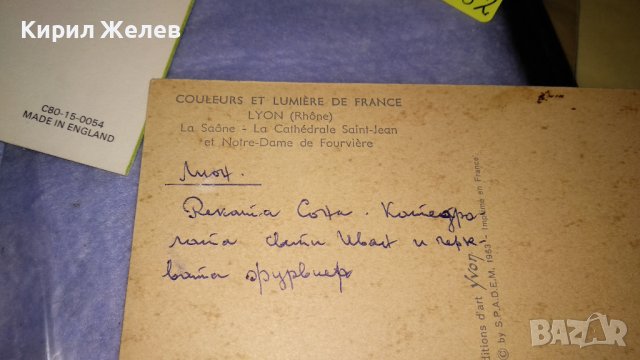 Кирил Желев
C80-15-0054
MADE IN ENGLAND
COULEURS ET LUMIÈRE DE FRANCE
LYON (Rhône)
La Saône - La Cathédrale Saint-Jean
et Notre-Dame de Fourvière
Лион.
Реката Сона. Катедра
лата свети Иван и черк-
вата фурвиер
Editions d'art yvon
© by S.P.A.D.E.M. 1963 - Imprimé en France
BAZAR